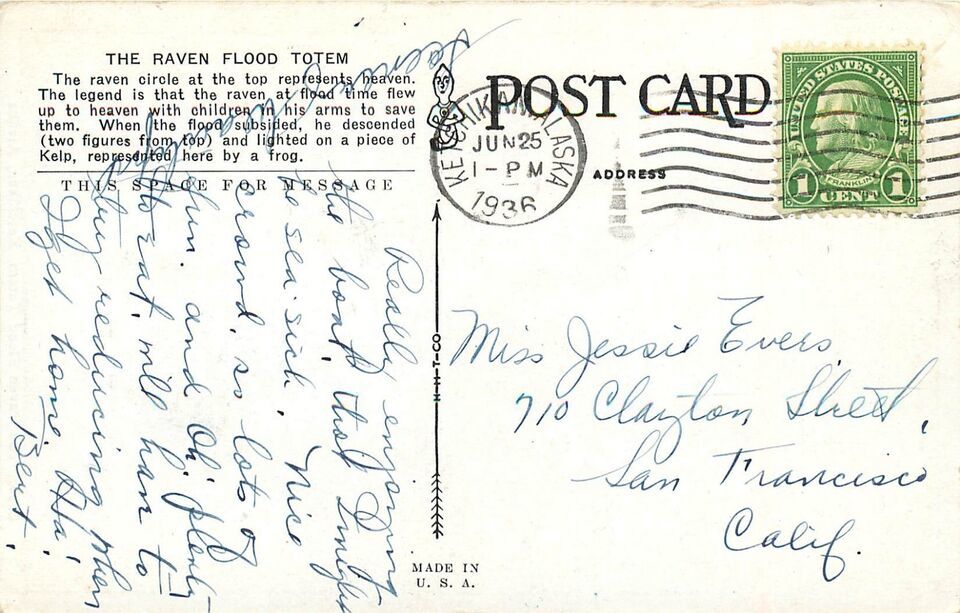 THE RAVEN FLOOD TOTEM
The raven circle at the top represents heaven.
The legend is that the raven at flood time flew
up to heaven with children in his arms to save
them. When the flood subsided, he descended
(two figures from top) and lighted on a piece of
Kelp, represented here by a frog.
THIS SPACE FOR MESSAGE
Really enjoying
the boat, I might
be sea sick. Nice
crowd, so lots of
fun. and Oh! plenty
to eat, will have to
try reducing when
I get home. Ha!
Bert.
N-H-T-CO
MADE IN
U. S. A.
POST CARD
ADDRESS
KETCHIKAN, ALASKA
JUN 25
1 - PM
1936
UNITED STATES POSTAGE
FRANKLIN
1 CENT 1
Miss Jessie Evers
710 Clayton Street,
San Francisco
Calif.